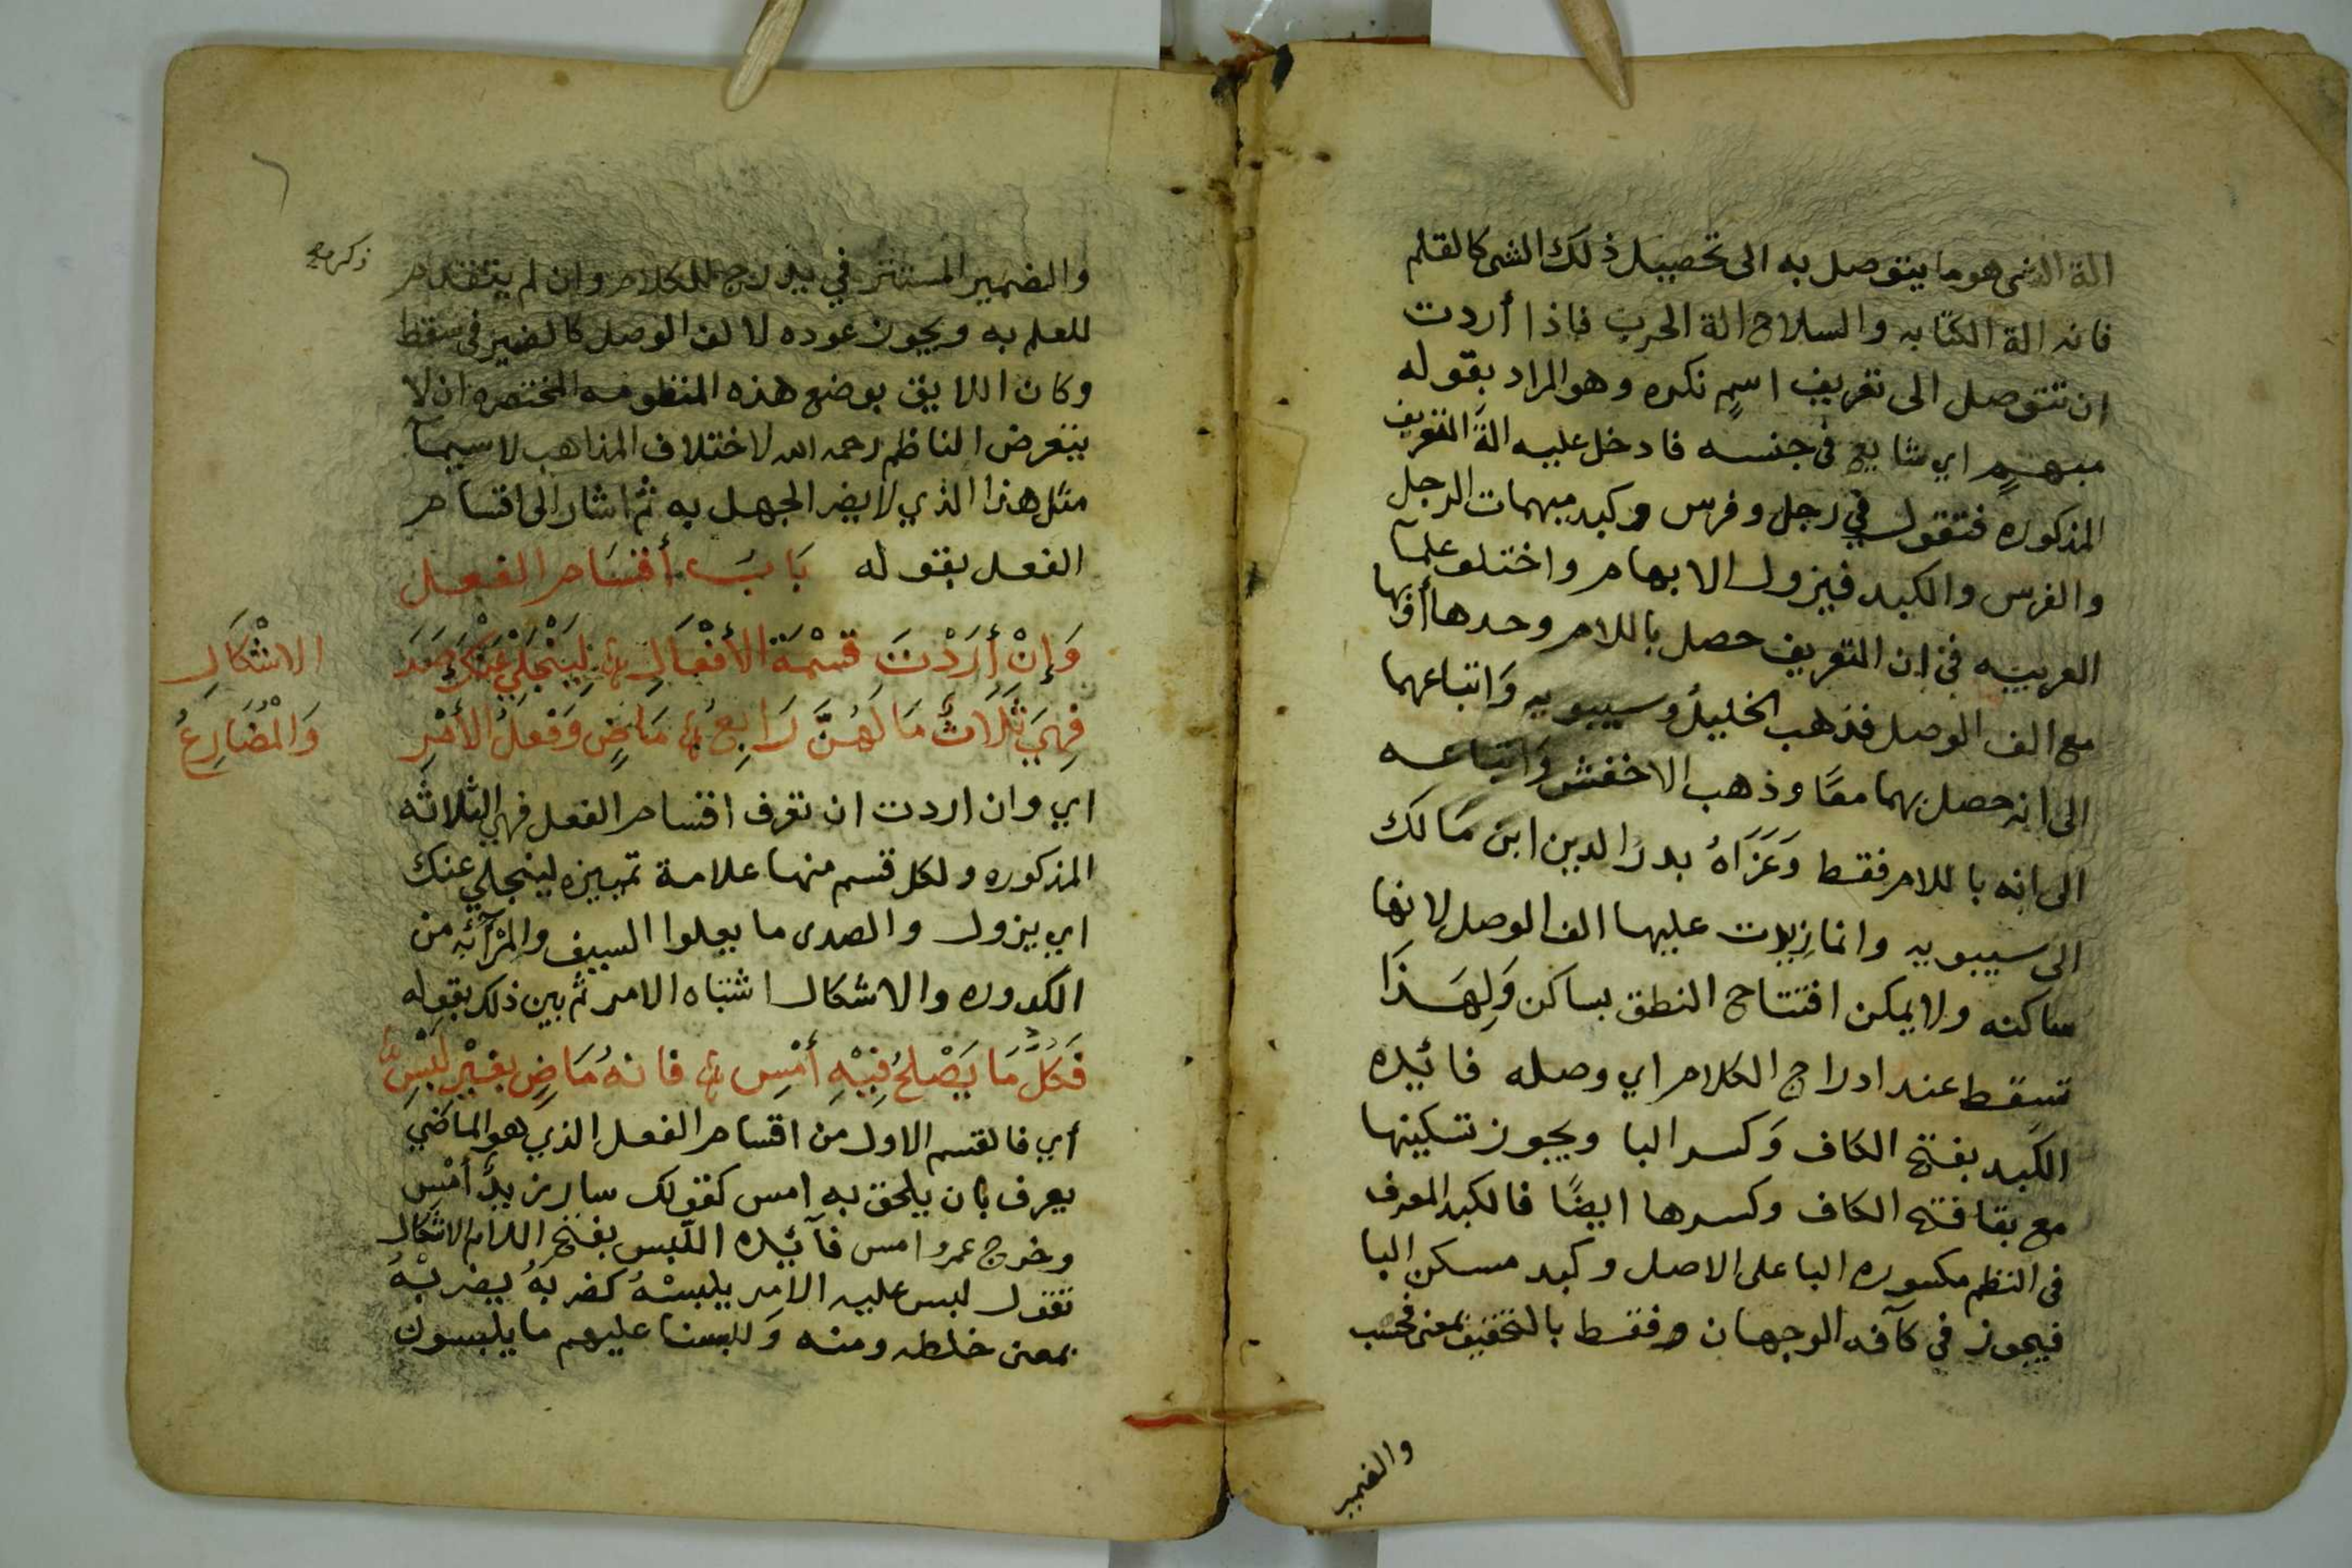 الة الشى هو ما يتوصل به الى تحصيل ذلك الشى كالقلم
فانه الة الكتابه والسلاح الة الحرب فاذا أردت
ان تتوصل الى تعريف اسمٍ نكره وهو المراد بقوله
مبهمٍ اي شايع فى جنسه فادخل عليه الةَ التعريف
المذكوره فتقول في رجل وفرس وكبد مبهمات الرجل
والفرس والكبد فيزول الابهام واختلو علمآ
العربيه فى ان التعريف حصل باللام وحدها أو بها
مع الف الوصل فذهب الخليلُ وسيبويه وَاتباعهما
الى انه حصل بهما معًا وذهب الاخفش وَاتباعه
الى انه باللام فقط وَعَزَاهُ بدرُ الدين ابن مَالك
الى سيبويه وانما زيدت عليها الف الوصل لانها
ساكنه ولا يمكن افتتاح النطق بساكن وَلِهَذَا
تسقط عند ادراج الكلام اي وصله فائيده
الكَبِد بفتح الكاف وَكسر البا ويجوز تسكينها
مع بقا فتح الكاف وكسرها ايضًا فالكبد المعرف
فى النظم مكسوره البا على الاصل وكبد مسكن البا
فيجوز في كآفه الوجهان وفقط بالتخفيف بمعنى فحسب
والضمير
والضمير المستتر في يدرج للكلام وان لم يتقدم
ذكره
للعلم به ويجوز عوده لالف الوصل كالضمير فى سقط
وكان اللايق بوضع هذه المنظومه المختصره ان لا
يتعرض الناظم رحمه الله لاختلاف المذاهب لا سيمآ
مثل هذا الذي لا يضر الجهل به ثم اشار الى اقسام
الفعل بقوله بَابُ أقسَام الفعل
وَإِنْ أَرَدْتَ قسْمَةَ الأَفْعَالِ لِيَنْجَلِيْ عَنْكَ صَدَ الاشْكَالِ
فهِيَ ثَلَاثٌ مَا لَهُنَّ رَابِعُ مَاضٍ وَفعلُ الأَمْرِ وَالْمُضَارِعُ
اي وان اردت ان تعرف اقسام الفعل فهي الثلاثه
المذكوره ولكل قسم منها علامة تميزه لينجلي عنك
اي يزول والصدى ما يعلوا السيف والمرآئه من
الكدوره والاشكال اشتباه الامر ثم بين ذلك بقوله
فَكلُّ مَا يَصْلحُ فِيْهِ أَمْسِ فانهُ مَاضٍ بغيْرِ لَبْسِ
أي فالقسم الاول من اقسام الفعل الذي هو الماضي
يعرف بان يلحق به امس كقولك سار زيدٌ أمْسِ
وخرج عمرو امس فآئيده اللّبس بفتح اللام الاشكال
تقول لبس عليه الامر يلبسْهُ كضربهُ يضربْهُ
بمعنى خلطه ومنه وَللبسنا عليهم ما يلبسون